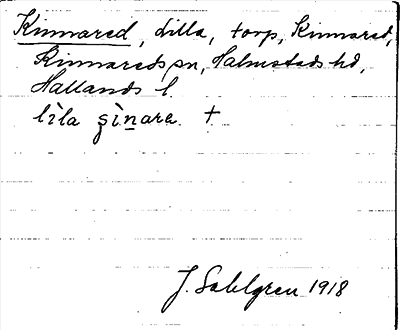 Kinnared, lilla, torp, Kinnared,
Kinnareds sn, Halmstads hd,
Hallands l.
lìla ʂìnara. +
J. Sahlgren 1918